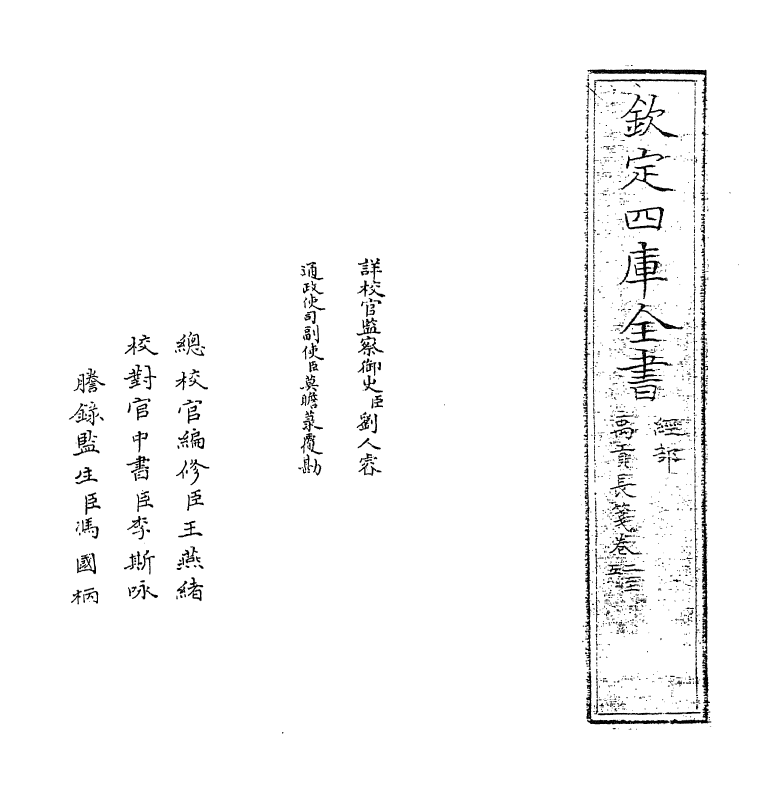 欽定四庫全書
經部
禹貢長箋卷二至五
詳校官監察御史臣劉人睿
通政使司副使臣莫瞻菉覆勘
總校官編修臣王燕緒
校對官中書臣李斯咏
謄錄監生臣馮國柄